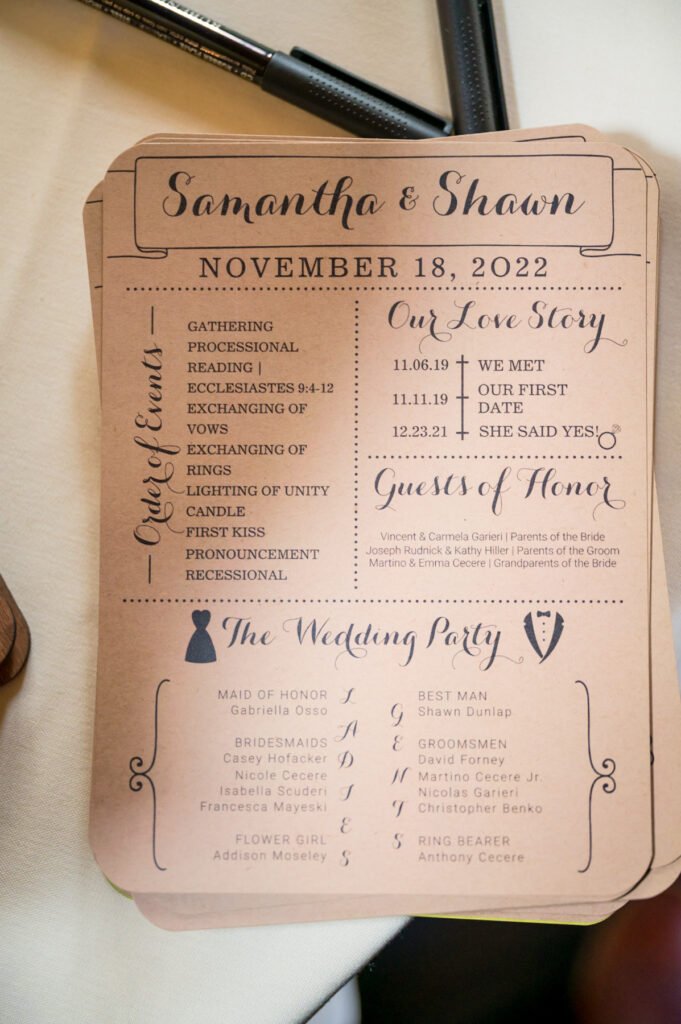 Samantha & Shawn
NOVEMBER 18, 2022
Order of Events
GATHERING
PROCESSIONAL
READING |
ECCLESIASTES 9:4-12
EXCHANGING OF
VOWS
EXCHANGING OF
RINGS
LIGHTING OF UNITY
CANDLE
FIRST KISS
PRONOUNCEMENT
RECESSIONAL
Our Love Story
11.06.19 WE MET
11.11.19 OUR FIRST
DATE
12.23.21 SHE SAID YES!
Guests of Honor
Vincent & Carmela Garieri | Parents of the Bride
Joseph Rudnick & Kathy Hiller | Parents of the Groom
Martino & Emma Cecere | Grandparents of the Bride
The Wedding Party
LADIES
MAID OF HONOR
Gabriella Osso
BRIDESMAIDS
Casey Hofacker
Nicole Cecere
Isabella Scuderi
Francesca Mayeski
FLOWER GIRL
Addison Moseley
GENTS
BEST MAN
Shawn Dunlap
GROOMSMEN
David Forney
Martino Cecere Jr.
Nicolas Garieri
Christopher Benko
RING BEARER
Anthony Cecere